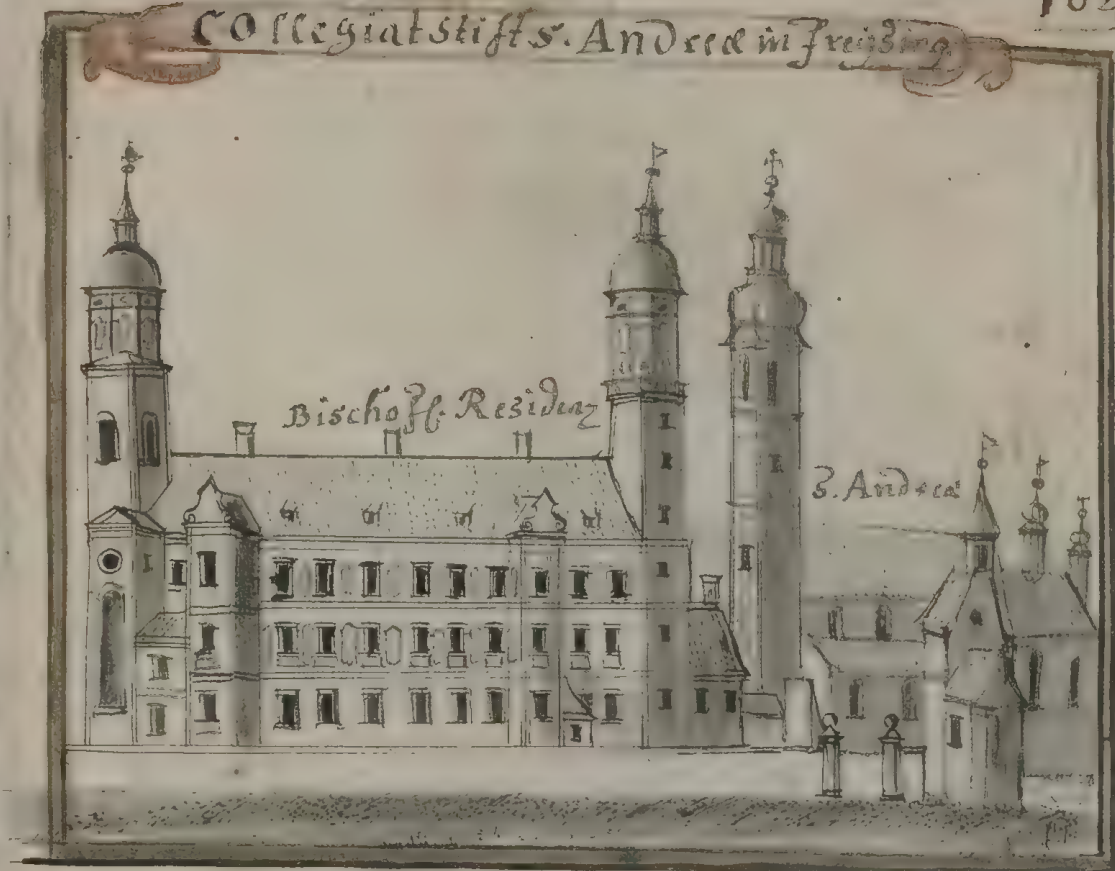 Collegiatstifft S. Andreæ in Freysing
Bischoffl. Residenz
S. Andreæ